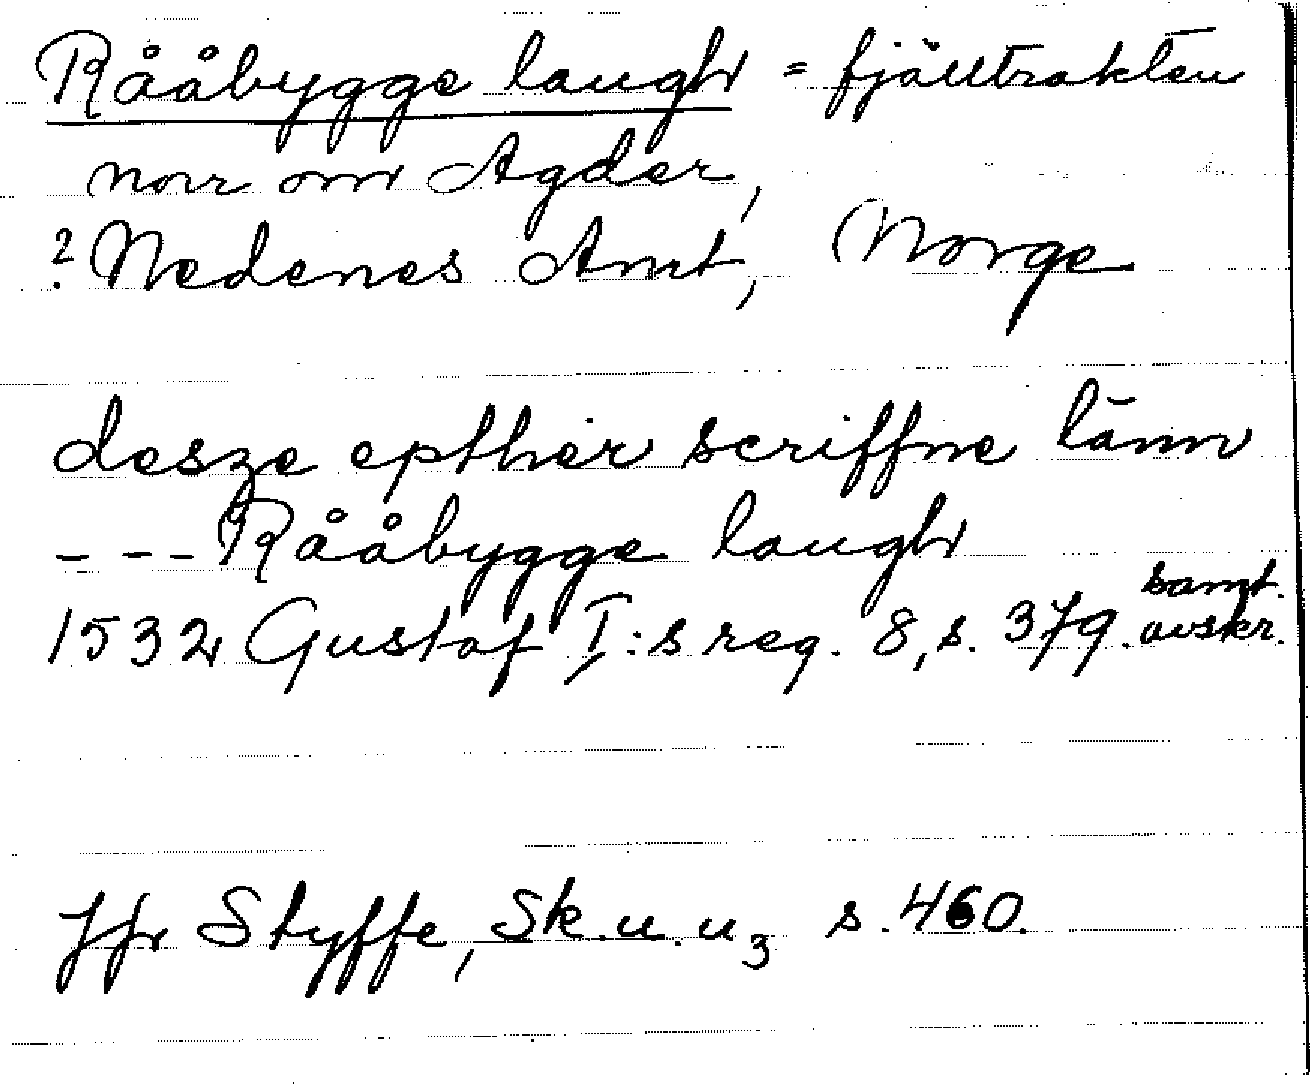 Rååbygge laugh = fjälltrakten
norr om Agder,
? Nedenes Amt, Norge
desze epther scriffne länn
- - - Rååbygge laugh
1532 Gustaf I:s reg. 8, s. 379. samt. avskr.
Jfr Styffe, Sk. u. u₃ s. 460.